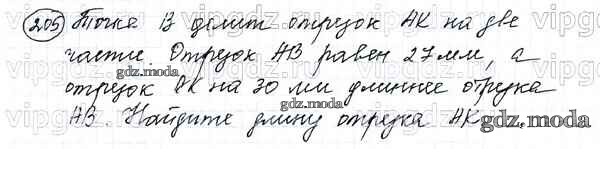 205 Точка В делит отрезок АК на две
части. Отрезок АВ равен 27 мм, а
gdz.moda
отрезок ВК на 30 мм длиннее отрезка
gdz.moda
АВ. Найдите длину отрезка АК.
gdz.moda